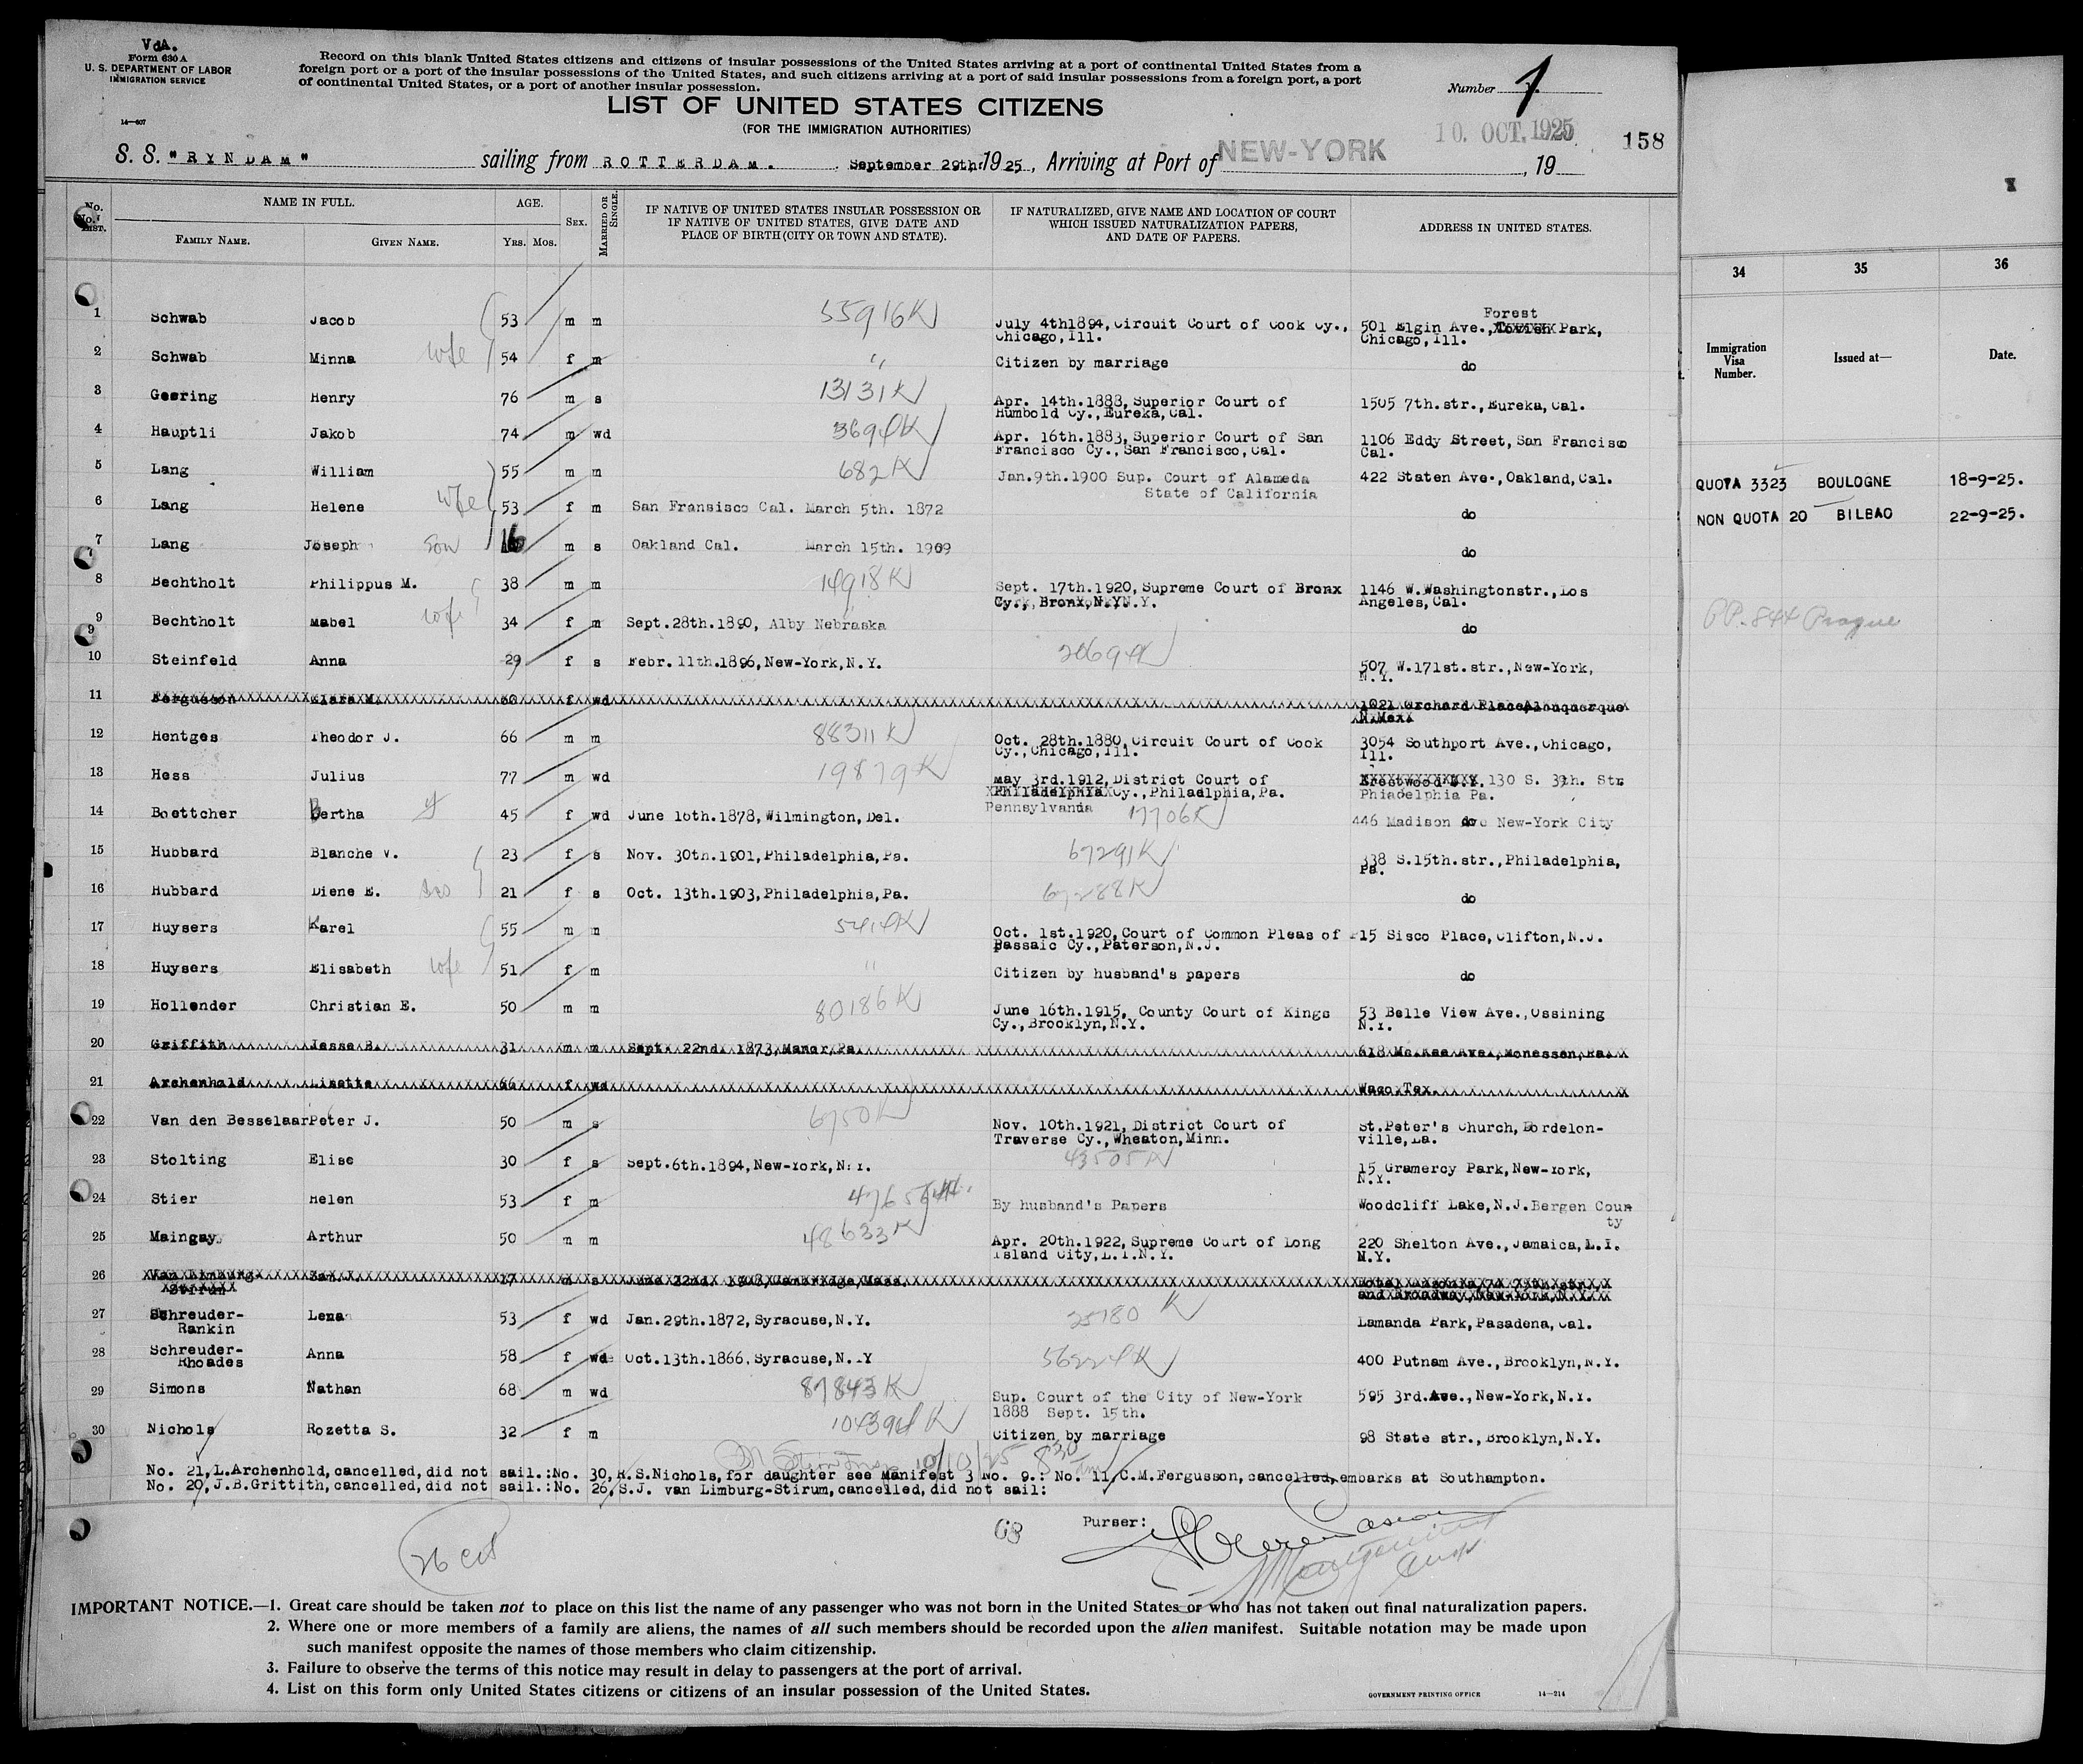 VdA.
Form 630 A
U. S. DEPARTMENT OF LABOR
IMMIGRATION SERVICE
14—607
Record on this blank United States citizens and citizens of insular possessions of the United States arriving at a port of continental United States from a
foreign port or a port of the insular possessions of the United States, and such citizens arriving at a port of said insular possessions from a foreign port, a port
of continental United States, or a port of another insular possession.
Number 1
LIST OF UNITED STATES CITIZENS
(FOR THE IMMIGRATION AUTHORITIES)
10. OCT. 1925
158
S. S. "RYNDAM" sailing from ROTTERDAM. September 29th. 1925, Arriving at Port of NEW-YORK, 19
No. NAME IN FULL. AGE. Sex. MARRIED OR SINGLE. IF NATIVE OF UNITED STATES INSULAR POSSESSION OR IF NATIVE OF UNITED STATES, GIVE DATE AND PLACE OF BIRTH (CITY OR TOWN AND STATE). IF NATURALIZED, GIVE NAME AND LOCATION OF COURT WHICH ISSUED NATURALIZATION PAPERS, AND DATE OF PAPERS. ADDRESS IN UNITED STATES.
FAMILY NAME. GIVEN NAME. YRS. MOS.
Forest
1 Schwab Jacob 53 m m 55916K July 4th1894, Circuit Court of Cook Cy., 501 Elgin Ave., Park,
Chicago, Ill. Chicago, Ill.
2 Schwab Minna wfe 54 f m " Citizen by marriage do
3 Geering Henry 76 m s 13131K Apr. 14th.1888, Superior Court of 1505 7th.str., Eureka, Cal.
Humbold Cy., Eureka, Cal.
4 Hauptli Jakob 74 m wd 3694K Apr. 16th.1883, Superior Court of San 1106 Eddy Street, San Francisco
Francisco Cy., San Francisco, Cal. Cal.
5 Lang William 55 m m 682K Jan.9th.1900 Sup. Court of Alameda 422 Staten Ave., Oakland, Cal.
State of California
6 Lang Helene wfe 53 f m San Fransisco Cal. March 5th. 1872 do
7 Lang Joseph son 16 m s Oakland Cal. March 15th. 1909 do
8 Bechtholt Philippus M. 38 m m 14918K Sept. 17th.1920, Supreme Court of Bronx 1146 W.Washingtonstr., Los
Cy., Bronx, N.Y. Angeles, Cal.
9 Bechtholt Mabel wfe 34 f m Sept.28th.1890, Alby Nebraska do
10 Steinfeld Anna 29 f s Febr. 11th.1896, New-York, N.Y. 20694K 507 W.171st.str., New-York,
N.Y.
11 Fergusson Clara M. 60 f wd 1021 Orchard Place Albuquerque
N.Mex.
12 Hentges Theodor J. 66 m m 88311K Oct. 28th.1880, Circuit Court of Cook 3054 Southport Ave., Chicago,
Cy., Chicago, Ill. Ill.
13 Hess Julius 77 m wd 19879K May 3rd.1912, District Court of Crestwood N.Y. 130 S. 39th. Str.
Philadelphia Cy., Philadlphia, Pa. Phiadelphia Pa.
Pennsylvania
14 Boettcher Bertha 45 f wd June 16th.1878, Wilmington, Del. 17706K 446 Madison Ave New-York City
15 Hubbard Blanche V. 23 f s Nov. 30th.1901, Philadelphia, Pa. 67291K 338 S.15th.str., Philadelphia,
Pa.
16 Hubbard Diene E. sis 21 f s Oct. 13th.1903, Philadelphia, Pa. 67288K do
17 Huysers Karel 55 m m 5414K Oct. 1st.1920, Court of Common Pleas of 15 Sisco Place, Clifton, N.J.
Passaic Cy., Paterson, N.J.
18 Huysers Elisabeth wfe 51 f m " Citizen by husband's papers do
19 Hollender Christian E. 50 m m 80186K June 16th.1915, County Court of Kings 53 Belle View Ave., Ossining
Cy., Brooklyn, N.Y. N.Y.
20 Griffith Jesse B. 31 m m Sept. 22nd. 1873, Manor, Pa. 618 McKee Ave., Monessen, Pa.
21 Archenhold Lisette 66 f wd Waco Tex.
22 Van den Besselaar Peter J. 50 m s 6750K Nov. 10th.1921, District Court of St.Peter's Church, Bordelon-
Traverse Cy., Wheaton, Minn. ville, La.
23 Stolting Elise 30 f s Sept.6th.1894, New-York, N.Y. 43505K 15 Gramercy Park, New-York,
N.Y.
24 Stier Helen 53 f m By husband's Papers Woodcliff Lake, N.J. Bergen Coun
ty
25 Maingay Arthur 50 m m 48633K Apr. 20th.1922, Supreme Court of Long 220 Shelton Ave., Jamaica, L.I.
Island City, L.I.N.Y. N.Y.
26 Van Limburg- 17 m s June 22nd. 1908, Cambridge, Mass. Hotel Ansonia, 74 str.
Stirum and Broadway, New-York, N.Y.
27 Schreuder- Lena 53 f wd Jan.29th.1872, Syracuse, N.Y. 25780 K Lamanda Park, Pasadena, Cal.
Rankin
28 Schreuder- Anna 58 f wd Oct.13th.1866, Syracuse, N.Y 56224K 400 Putnam Ave., Brooklyn, N.Y.
Rhoades
29 Simons Nathan 68 m wd 87843K Sup. Court of the City of New-York 595 3rd.Ave., New-York, N.Y.
1888 Sept. 15th.
30 Nichols Rozetta S. 32 f m 104394K Citizen by marriage 98 State str., Brooklyn, N.Y.
10/10/25 830
No. 21, L.Archenhold, cancelled, did not sail.:No. 30, R.S.Nichols, for daughter see Manifest 3 No. 9.: No. 11, C.M.Fergusson, cancelled, embarks at Southampton.
No. 20, J.B.Grittith, cancelled, did not sail.:No. 26, S.J. van Limburg-Stirum, cancelled, did not sail:
68
Purser:
26 cit
IMPORTANT NOTICE.—1. Great care should be taken not to place on this list the name of any passenger who was not born in the United States or who has not taken out final naturalization papers.
2. Where one or more members of a family are aliens, the names of all such members should be recorded upon the alien manifest. Suitable notation may be made upon
such manifest opposite the names of those members who claim citizenship.
3. Failure to observe the terms of this notice may result in delay to passengers at the port of arrival.
4. List on this form only United States citizens or citizens of an insular possession of the United States.
GOVERNMENT PRINTING OFFICE 14—214
34 35 36
Immigration Visa Number. Issued at— Date.
QUOTA 3323 BOULOGNE 18-9-25.
NON QUOTA 20 BILBAO 22-9-25.
PP. 844 Prague